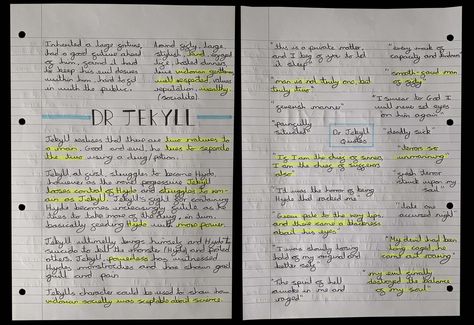 Inherited a large fortune,
had a good future ahead
of him, found it hard
to keep his evil desires
within him, hard to fit
in with the public.
hand, sixty, large,
stylish, fond, rugged
face, hosted dinners,
true victorian gentleman,
well respected, values
reputation, wealthy.
(socialite).
DR JEKYLL
Jekyll realises that there are two natures to
a man. Good and evil, he tries to separate
the two using a drug/potion.
Jekyll at first, struggles to become Hyde,
however as the novel progresses Jekyll
loses control of Hyde and struggles to rem-
ain as Jekyll. Jekyll's fight for containing
Hyde becomes increasingly futile as he
tries to take more of the drug, in turn,
basically feeding Hyde with more power.
Jekyll ultimately brings himself and Hyde to
suicide to halt the monster Hyde and protect
others. Jekyll, powerless has witnessed
Hydes monstrosities and has shown good
guilt and pain.
Jekylls character could be used to show how
victorian society was sceptable about science.
"this is a private matter,
and I beg of you to let
it sleep"
"man is not truly one, but
truly two"
"feverish manner"
"painfully
situated"
"every mark of
capacity and kindness"
"smooth-faced man
of fifty"
"I swear to God I
will never set eyes
on him again"
Dr Jekyll
Quotes
"deadly sick"
"terror so
unmanning"
"If I am the chief of sinners,
I am the chief of sufferers
also"
"great terror
struck upon my
soul"
"I'd was the horror of being
Hyde that racked me"
"that one
accursed night"
"Grew pale to the very lips,
and there came a blackness
about his eyes"
"My devil had been
long caged, he
came out roaring"
"I was slowly losing
hold of my original and
better self"
"my evil finally
destroyed the balance
of my soul"
"The spirit of hell
awoke in me and
raged"